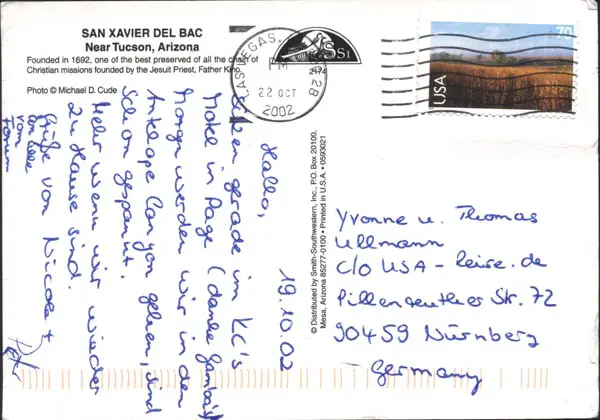 SAN XAVIER DEL BAC
Near Tucson, Arizona
Founded in 1692, one of the best preserved of all the chain of
Christian missions founded by the Jesuit Priest, Father Kino.
Photo © Michael D. Cude
LAS VEGAS,
PM
22 OCT
2002
70
USA
© Distributed by Smith-Southwestern, Inc., P.O. Box 20100,
Mesa, Arizona 85277-0100 • Printed in U.S.A. • 0593021
19.10.02
Hallo,
sitzen gerade im KC's
Motel in Page (danke
Morgen werden wir in den
Antelope Canyon gehen, sind
schon gespannt.
Mehr wenn wir wieder
zu Hause sind.
Grüße von Nicole +
Peter
an alle
vom
Forum
Yvonne u. Thomas
Ullmann
C/O USA - Reise.de
Pillenreuther Str. 72
90459 Nürnberg
Germany